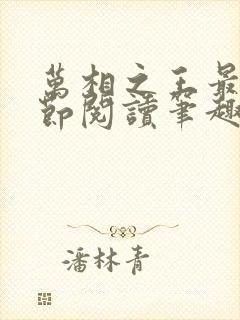 萬相之王最
節閱讀筆趣
潘林青